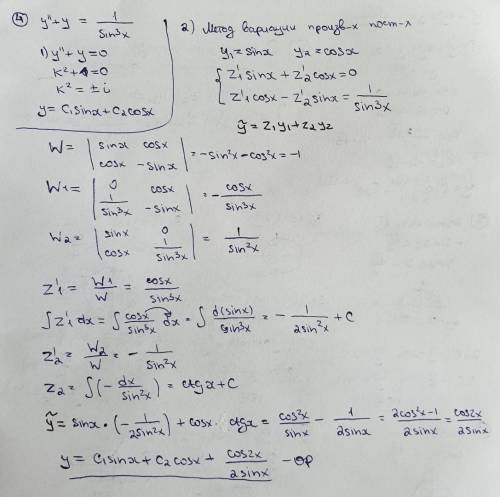 ④ y'' + y = 1/sin³x
1) y'' + y = 0
k² + 1 = 0
k² = ± i
y = C₁sinx + C₂cosx
2) Метод вариации произв-х пост-х
y₁ = sinx y₂ = cosx
{ z'₁ sinx + z'₂ cosx = 0
z'₁ cosx - z'₂ sinx = 1/sin³x
ỹ = z₁y₁ + z₂y₂
W = | sinx cosx |
| cosx -sinx | = -sin²x - cos²x = -1
W₁ = | 0 cosx |
| 1/sin³x -sinx | = - cosx/sin³x
W₂ = | sinx 0 |
| cosx 1/sin³x | = 1/sin²x
z'₁ = W₁/W = cosx/sin³x
∫z'₁ dx = ∫ cosx/sin³x dx = ∫ d(sinx)/sin³x = - 1/2sin²x + C
z'₂ = W₂/W = - 1/sin²x
z₂ = ∫(- dx/sin²x) = ctgx + C
ỹ = sinx · (- 1/2sin²x) + cosx · ctgx = cos²x/sinx - 1/2sinx = 2cos²x-1/2sinx = cos2x/2sinx
y = C₁sinx + C₂cosx + cos2x/2sinx - ор